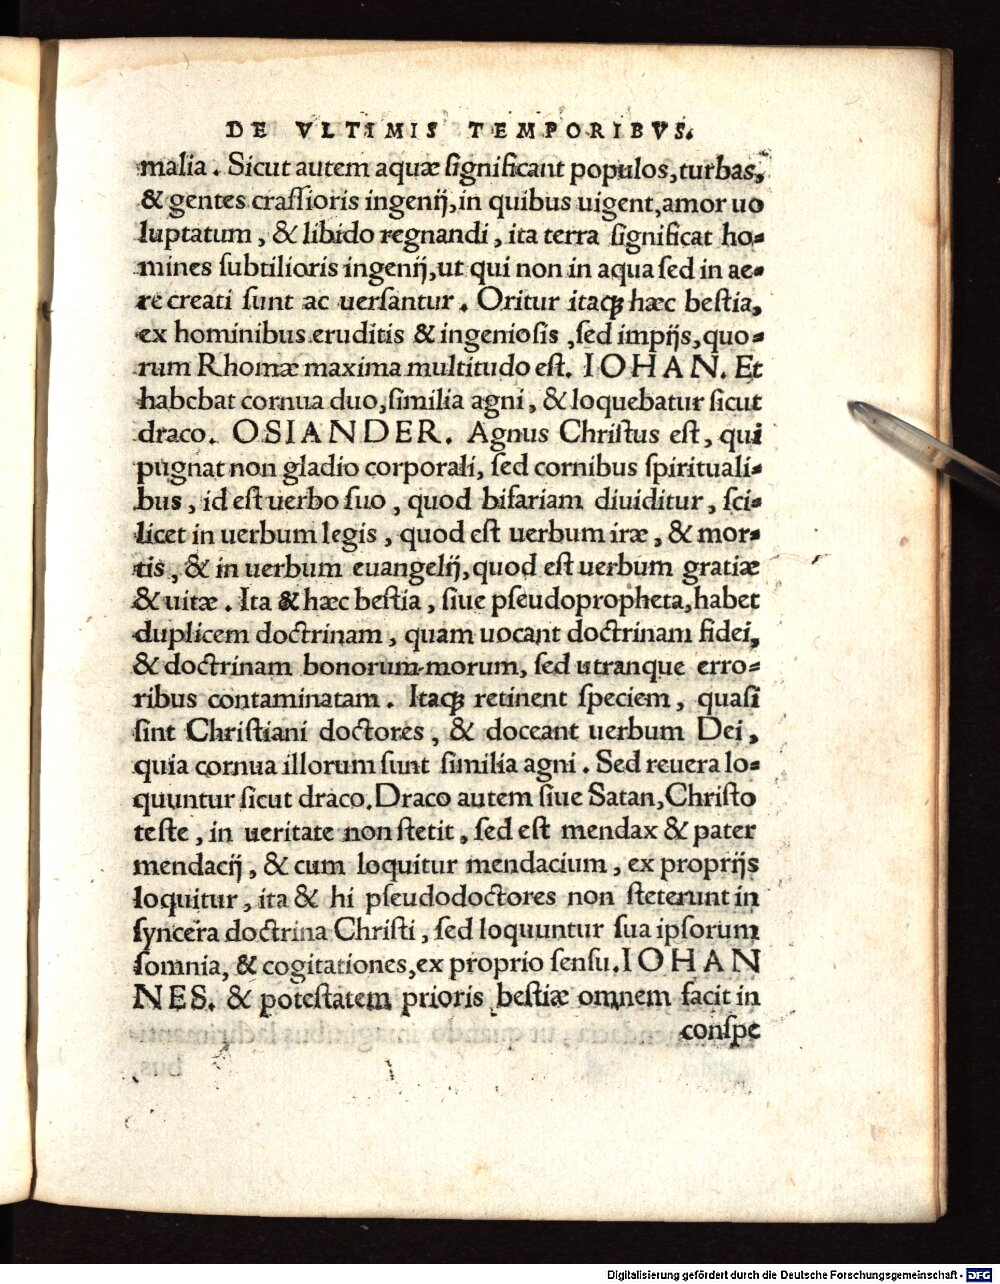 DE VLTIMIS TEMPORIBVS.
malia. Sicut autem aquæ ſignificant populos, turbas,
& gentes craſſioris ingenij, in quibus uigent, amor uo
luptatum, & libido regnandi, ita terra ſignificat ho-
mines ſubtilioris ingenij, ut qui non in aqua ſed in ae-
re creati ſunt ac uerſantur. Oritur itaqꝫ hæc beſtia,
ex hominibus eruditis & ingenioſis, ſed impijs, quo-
rum Rhomæ maxima multitudo eſt. IOHAN. Et
habebat cornua duo, ſimilia agni, & loquebatur ſicut
draco. OSIANDER. Agnus Chriſtus eſt, qui
pugnat non gladio corporali, ſed cornibus ſpirituali-
bus, id eſt uerbo ſuo, quod bifariam diuiditur, ſci-
licet in uerbum legis, quod eſt uerbum iræ, & mor-
tis, & in uerbum euangelij, quod eſt uerbum gratiæ
& uitæ. Ita & hæc beſtia, ſiue pſeudopropheta, habet
duplicem doctrinam, quam uocant doctrinam fidei,
& doctrinam bonorum morum, ſed utranque erro-
ribus contaminatam. Itaqꝫ retinent ſpeciem, quaſi
ſint Chriſtiani doctores, & doceant uerbum Dei,
quia cornua illorum ſunt ſimilia agni. Sed reuera lo-
quuntur ſicut draco. Draco autem ſiue Satan, Chriſto
teſte, in ueritate non ſtetit, ſed eſt mendax & pater
mendacij, & cum loquitur mendacium, ex proprijs
loquitur, ita & hi pſeudodoctores non ſteterunt in
ſyncera doctrina Chriſti, ſed loquuntur ſua ipſorum
ſomnia, & cogitationes, ex proprio ſenſu. IOHAN
NES. & poteſtatem prioris beſtiæ omnem facit in
conſpe
Digitalisierung gefördert durch die Deutsche Forschungsgemeinschaft - DFG